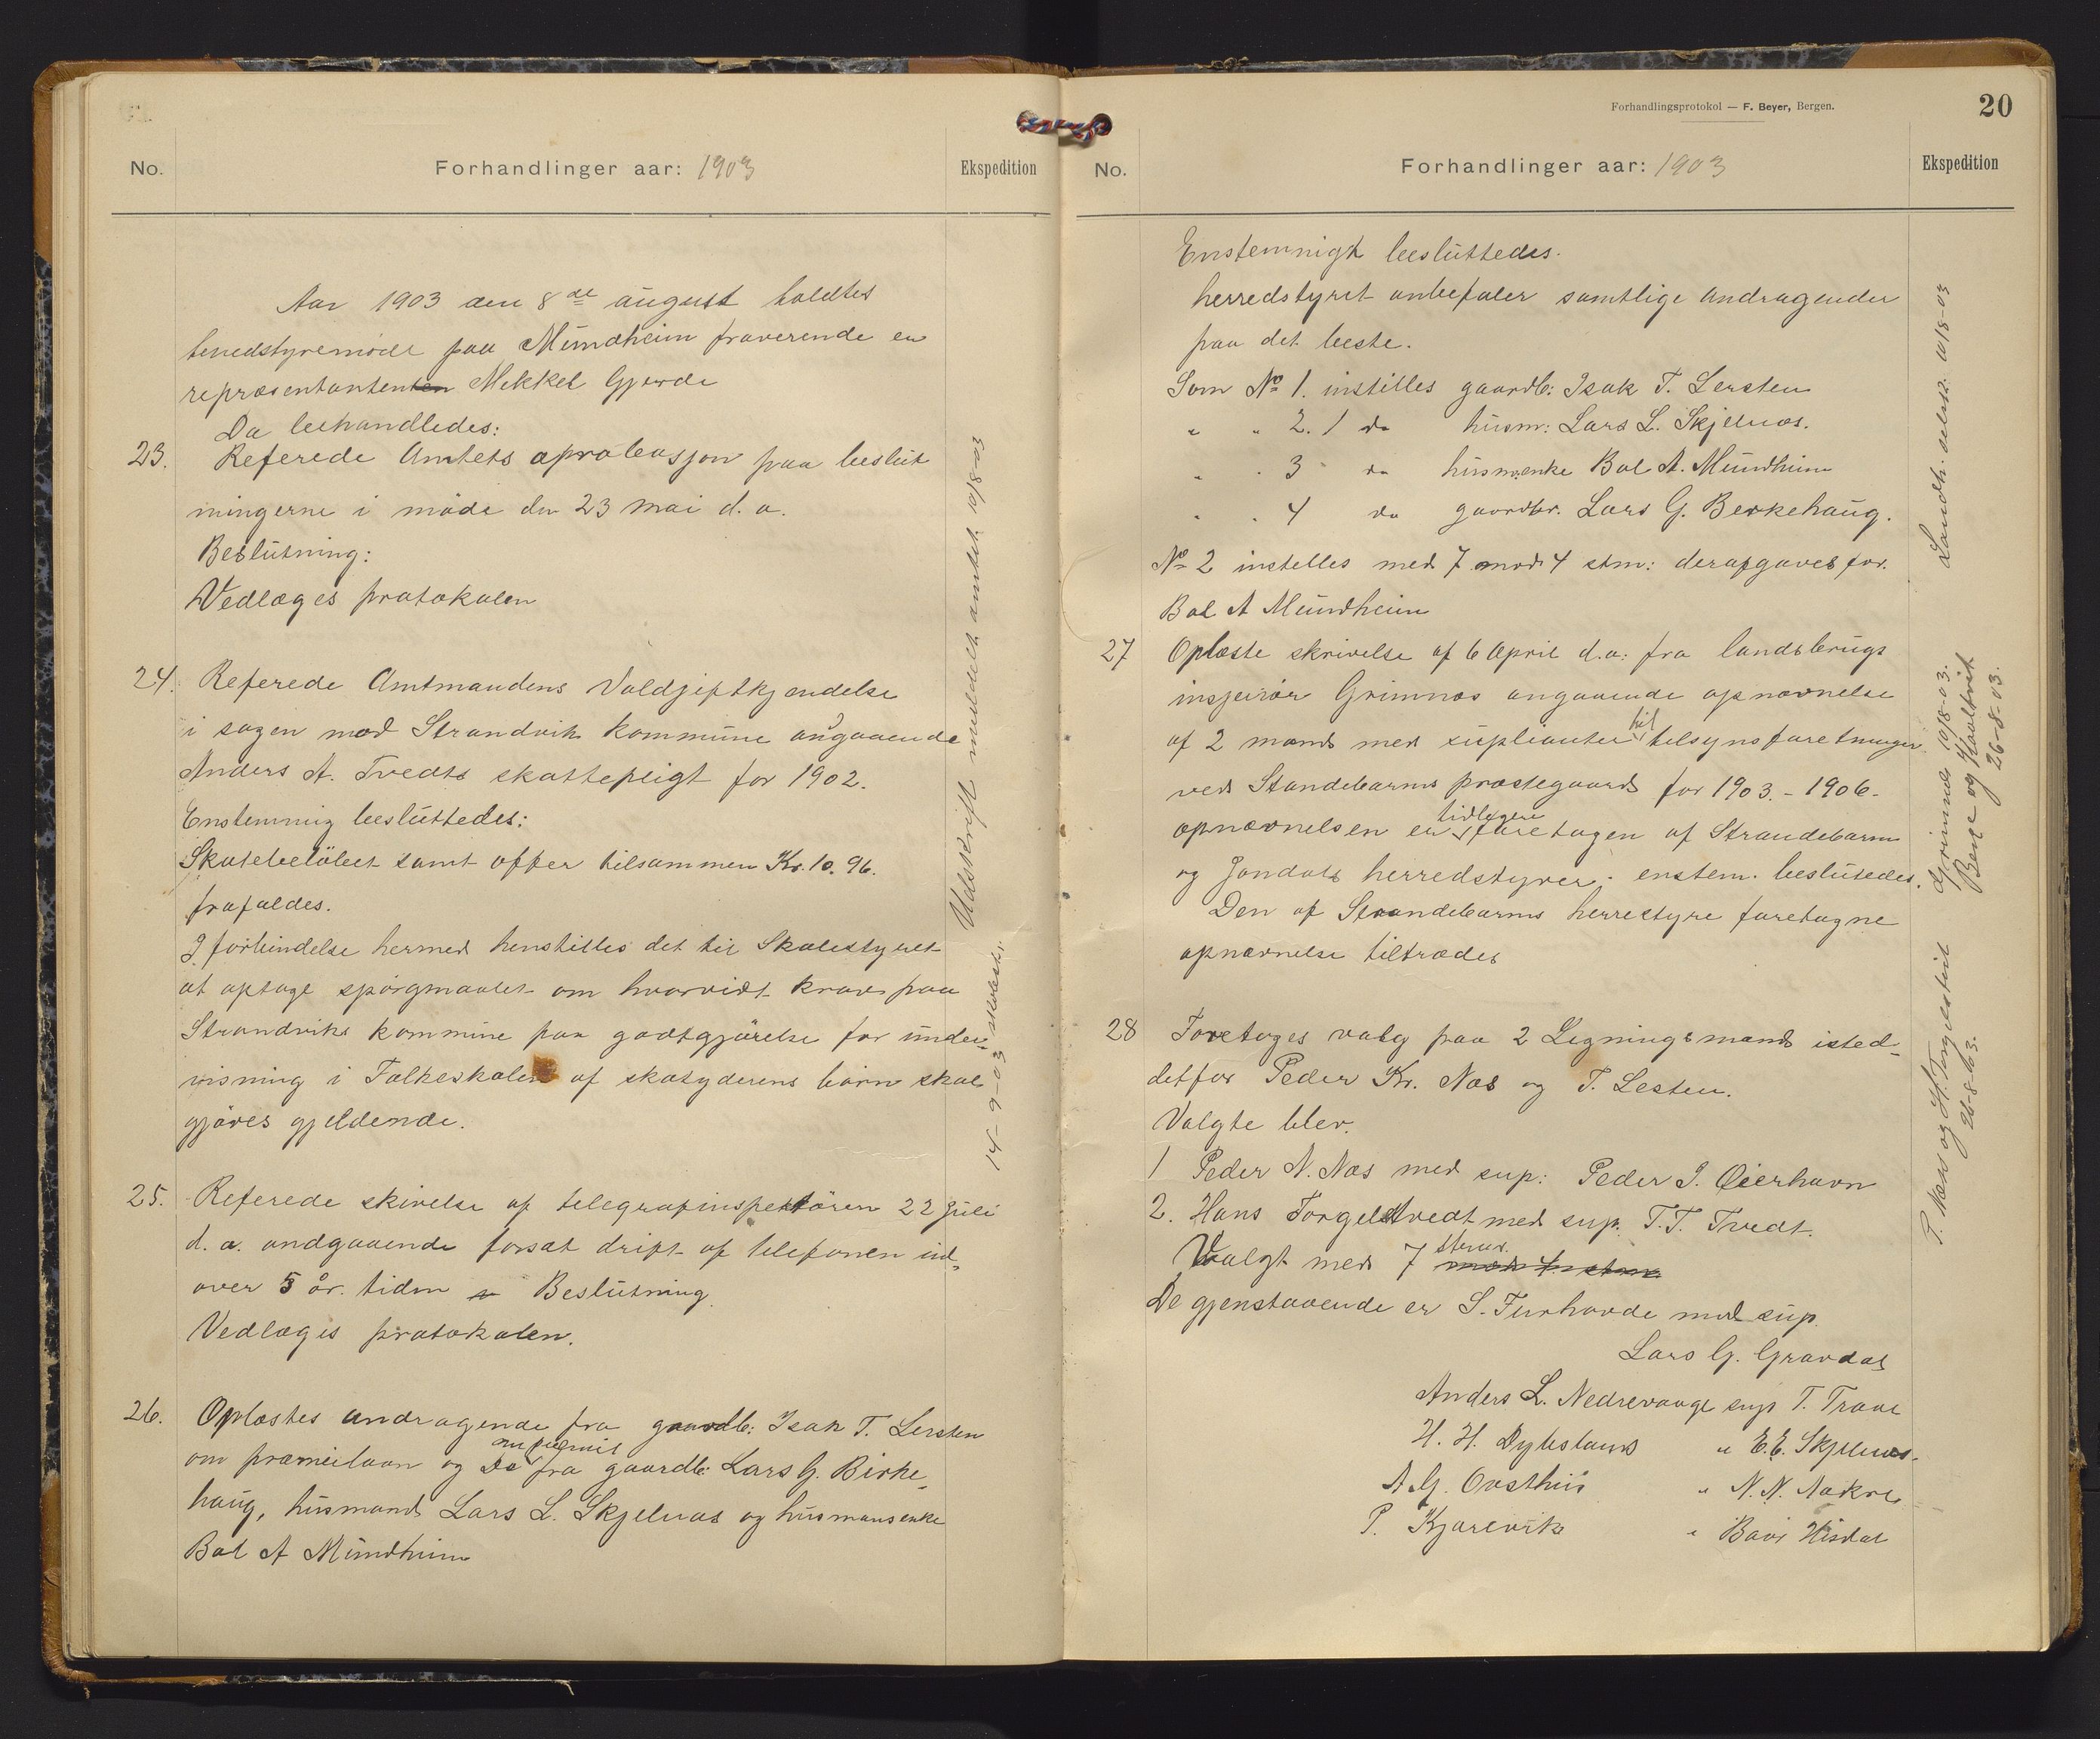 No.
Forhandlinger aar: 1903
Ekspedition
Aar 1903 den 8de august holdtes
herredstyremöde paa Mundheim fraverende en
repræsentantenten Mikkel Gjerde
Da behandledes:
23. Referede Amtets aprobasjon paa beslut
ningerne i möde den 23 mai d. a.
Beslutning:
Vedlæges protokolen
24. Referede Amtmandens Voldgiftkjendelse
i sagen mod Strandvik kommune angaaende
Anders A. Tvedts skattepligt for 1902.
Enstemmig besluttedes:
Skatebelöbet samt offer tilsammen Kr. 10.96.
frafaldes.
I forbindelse hermed henstilles det til Skolestyret
at optage spörgmaalet om hvorvidt krav paa
Strandviks kommune paa godtgjörelse for under-
visning i Folkeskolen af skatyderens börn skal
gjöres gjeldende.
25. Referede skivelse af telegrafinspektören 22 juli
d. a. andgaaende forsat drift af telefonen ud-
over 5 år. tiden Beslutning
Vedlæges protokolen.
26. Oplæstes andragende fra gaardb: Isak T. Lersten
om præmielaan og Do fra gaardb: Lars G. Birke-
haug, husmand Lars L. Skjelnæs og husmansenke
Bol A Mundheim
Udskrift meddelt amtet 10/8-03
14-9-03 skolestr.
Forhandlingsprotokol — F. Beyer, Bergen.
20
No.
Forhandlinger aar: 1903
Ekspedition
Enstemnigt besluttedes.
herredstyret anbefaler samtlige andragender
paa det beste.
Som No 1. instilles gaardb: Isak T. Lersten
" " 2. 1 do husm: Lars L. Skjelnæs.
" " 3 do husm.enke Bol A. Mundheim
" " 4 do gaardbr. Lars G. Berkehaug.
No 2 instelles med 7 mod 4 stm: derafgaves for.
Bol A Mundheim
27 Oplæste skrivelse af 6 April d.a. fra landsbrugs
inspeiör Grimnæs angaaende opnævnelse
af 2 mænd med suplianter til tilsynsforetninger
ved Standebarms præstegaard for 1903.-1906.
opnævnelsen er tidligere foretagen af Strandebarm
og Jondals herredstyrer; enstem. beslutedes.
Den af Strandebarms herrestyre foretagne
opnævnelse tiltrædes
28 Foretages valg paa 2 Ligningsmænd isted-
detfor Peder Kr. Næs og T. Lesten.
Valgte blev.
1 Peder N. Næs med sup: Peder J. Oierhavn
2. Hans Torgeldtvedt med sup. T. T. Tvedt.
Valgt med 7 stemr. mod 4 stm
De gjenstaaende er S. Furhovde med sup.
Lars G. Gravdal
Anders L. Nedrevaage sup T. Traae
H. H. Dybsland " E.E. Skjelnæs.
A. G. Oasthus " N. N. Aakre
P. Kjarevik " Baar Hisdal
Landh. selsk. 10/8-03
Grimnæs 10/8-03.
Berge og Haaltvik
26-8-03.
P. Næs og H. Torgilstveit
26-8-03.